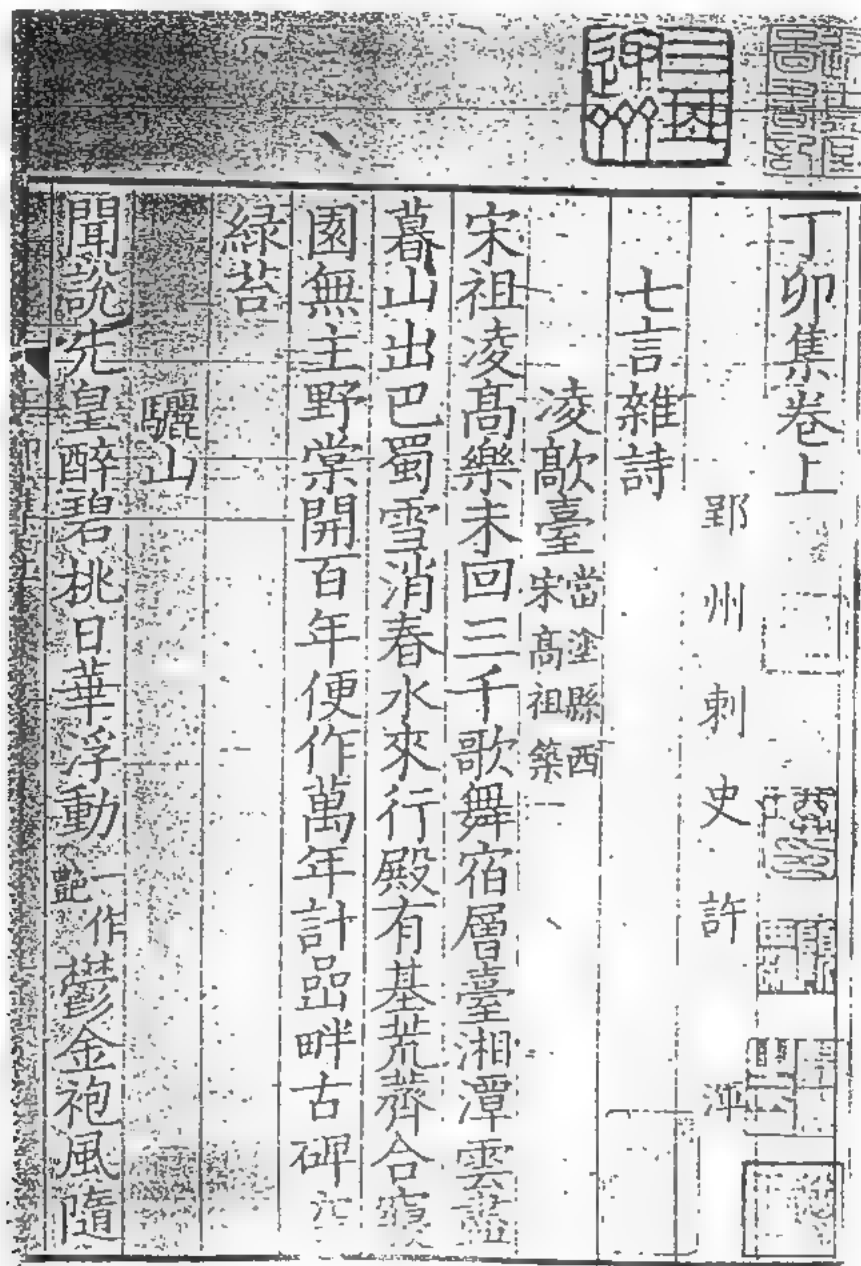 丁卯集卷上
郢州刺史許渾
七言雜詩
凌歊臺當塗縣西宋高祖築
宋祖凌髙樂未回三千歌舞宿層臺湘潭雲盡
暮山出巴蜀雪消春水來行殿有基荒薺合寢
園無主野棠開百年便作萬年計嵒畔古碑
緑苔
驪山
聞說先皇醉碧桃日華浮動一作艷鬱金袍風隨